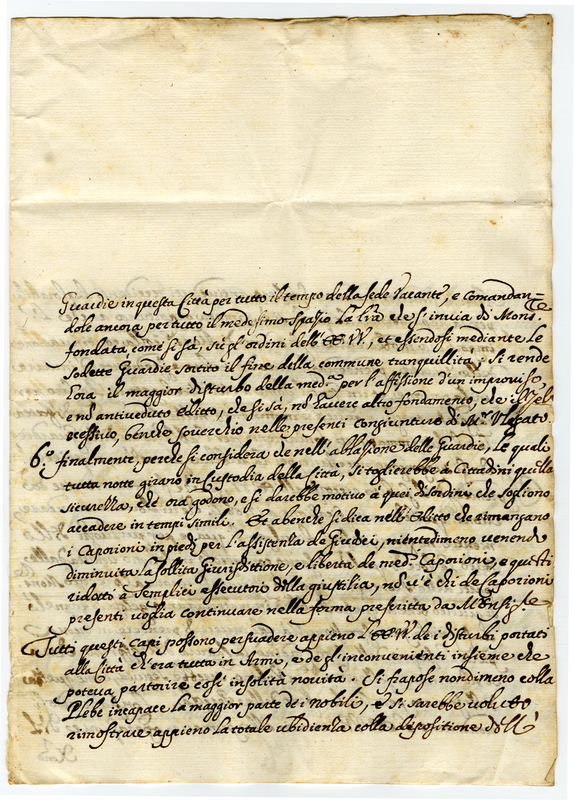 Guardie in questa Città per tutto il tempo della sede Vacante, e comandan=
dole ancora per tutto il medesimo spatio La che s' invia di Mons.
fondata, come si sà, sù gl' ordini dell' EE. VV, et essendosi mediante Le
sodette Guardie sortito il fine della commune tranquillità: si rende
hora il maggior disturbo della med.ª per l' affissione d' un improviso,
e nõ antiveduto editto, che si sà, nõ havere altro fondamento, che il
eccessivo, benche soverchio nelle presenti Coniunture di M.r
6.º finalmente, perche si considera che nell' ablatione delle Guardie, Le quali
tutta notte girano in Custodia della Città, si toglierebbe à Cittadini quella
sicurezza, che ora godono, e si darebbe motivo à quei disordini che sogliono
accadere in tempi simili. Et abenche si dica nell' Editto che rimangano
i Caporioni in piedi per l' assistenza de Giudei, nientedimeno venendo
diminuita la sollita Giurisditione, e libertà de med.i Caporioni, e questi
ridotti à semplici essecutori della giustitia, nõ v' è chi de Caporioni
presenti voglia continuare nella forma prescritta da
Tutti questi capi possono persuadere appieno L' EE. VV. de i disturbi portati
alla Città ch' era tutta in Armi, e de gl' inconvenienti insieme che
poteva partorire così insolità novità. Si frapose nondimeno colla
Plebe incapace la maggior parte de i nobili, e si sarebbe voluto
rimostrare appieno la totale ubidienza colla depositione dell'